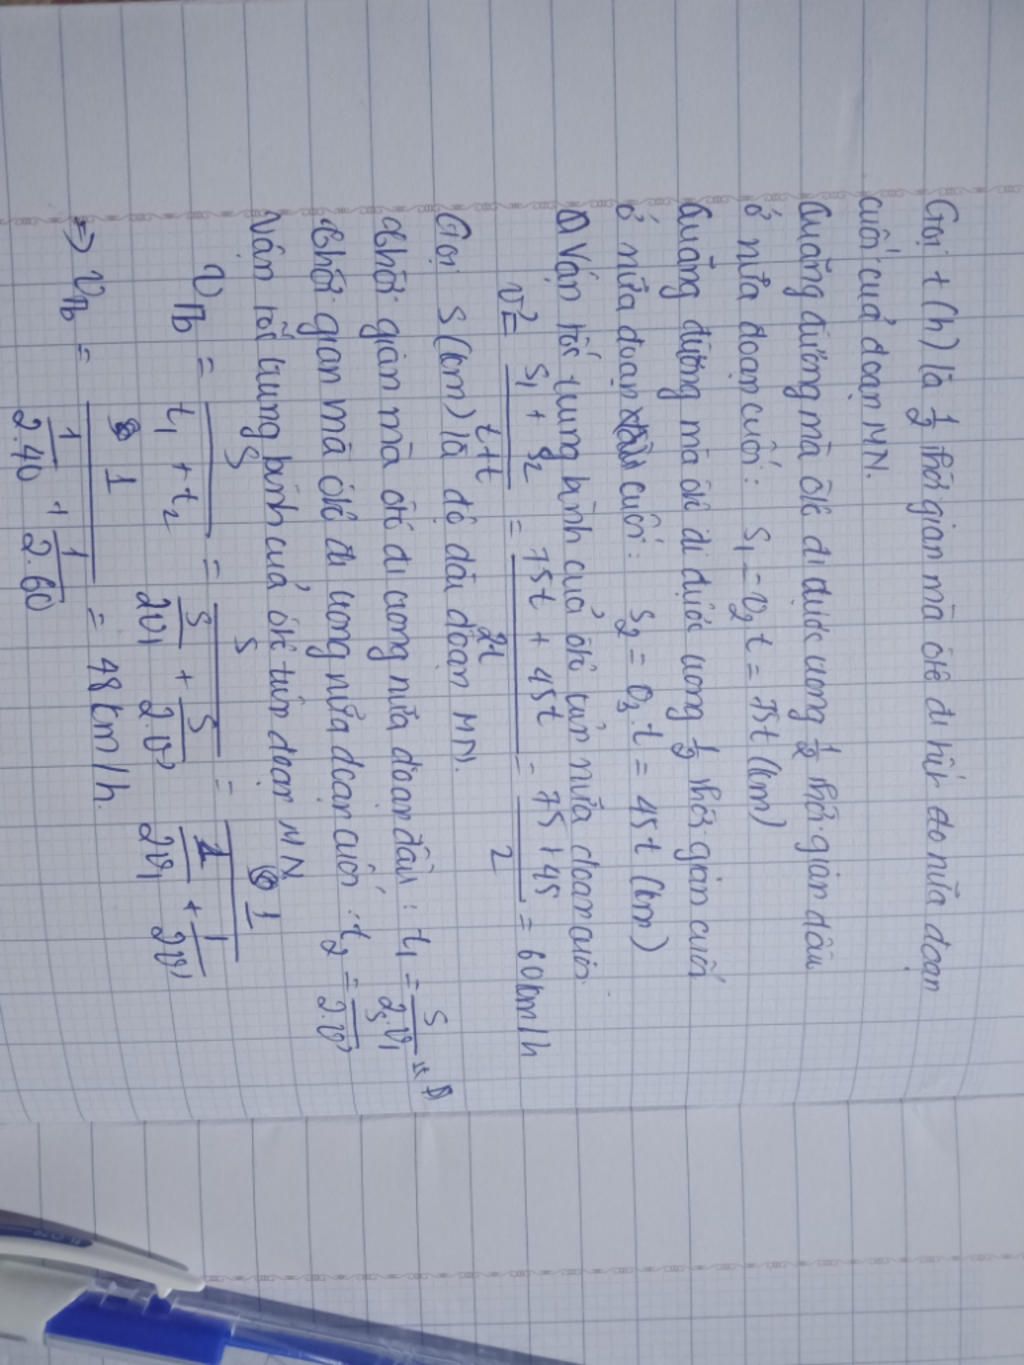 Gọi t(h) là 1/2 thời gian mà ôtô đi hết do nữa đoạn
cuối của đoạn MN.
Quãng đường mà ôtô đi được trong 1/2 thời gian đầu
ở nửa đoạn cuối: S₁ = v₂t = 75t (km)
Quãng đường mà ôtô đi được trong 1/2 thời gian cuối
ở nữa đoạn cuối: S₂ = v₃.t = 45t (km)
Vận tốc trung bình của ôtô trên nữa đoạn cuối
v' = (S₁ + S₂)/(t+t) = (75t + 45t)/2t = (75+45)/2 = 60km/h
Gọi S(km) là độ dài đoạn MN.
thời gian mà ôtô đi trong nữa đoạn đầu: t₁ = S/(2.v₁)
thời gian mà ôtô đi trong nữa đoạn cuối: t₂ = S/(2.v')
Vận tốc trung bình của ôtô trên đoạn MN
v_tb = S/(t₁ + t₂) = S/(S/2v₁ + S/2.v') = 1/(1/2v₁ + 1/2v')
=> v_tb = 1/(1/2.40 + 1/2.60) = 48km/h.